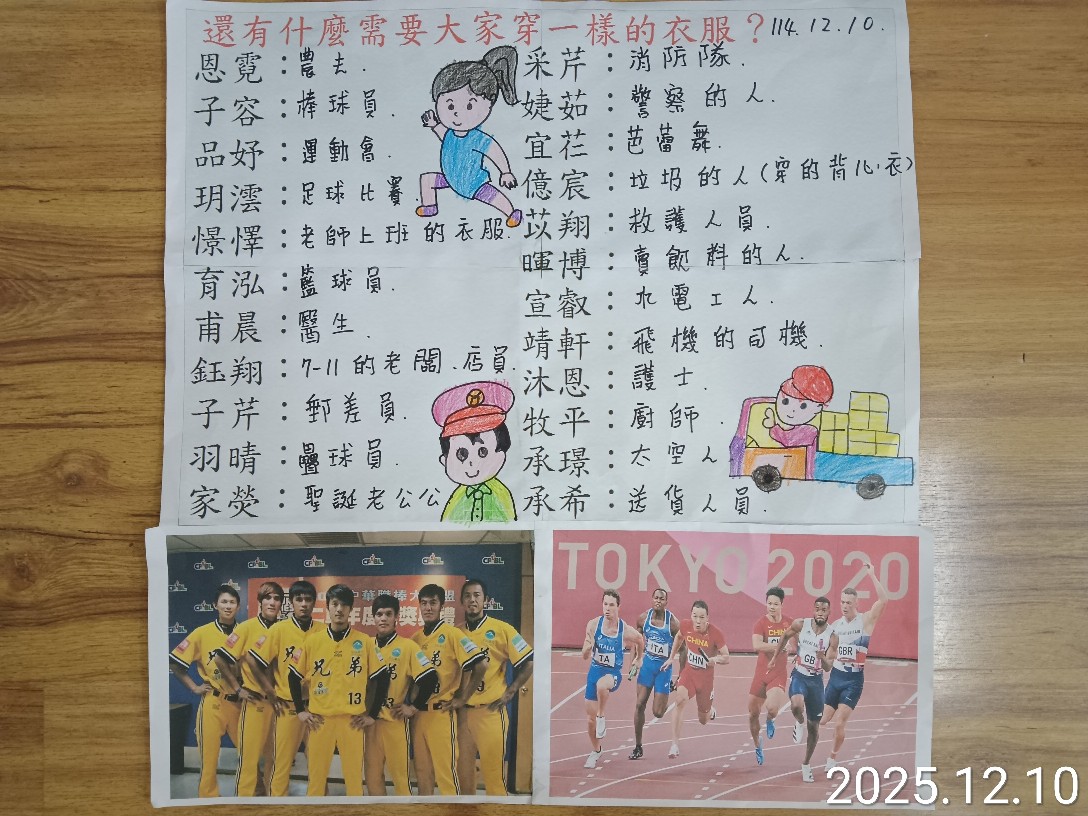 還有什麼需要大家穿一樣的衣服？114.12.10.
恩霓：農夫.
子容：棒球員.
品妤：運動會.
玥澐：足球比賽.
憬懌：老師上班的衣服.
育泓：籃球員.
甫晨：醫生.
鈺翔：7-11的老闆、店員.
子芹：郵差員.
羽晴：壘球員.
家熒：聖誕老公公
采芹：消防隊.
婕茹：警察的人.
宜芢：芭蕾舞.
億宸：垃圾的人(穿的背心衣)
苡翔：救護人員.
暉博：賣飲料的人.
宣叡：水電工人.
靖軒：飛機的司機.
沐恩：護士.
牧平：廚師.
承璟：太空人
承希：送貨人員.
CPBL
中華職棒大聯盟
年度
獎
禮
兄弟
13
TOKYO 2020
ITALIA
ITA
CHINA
CHN
GB
GBR
2025.12.10